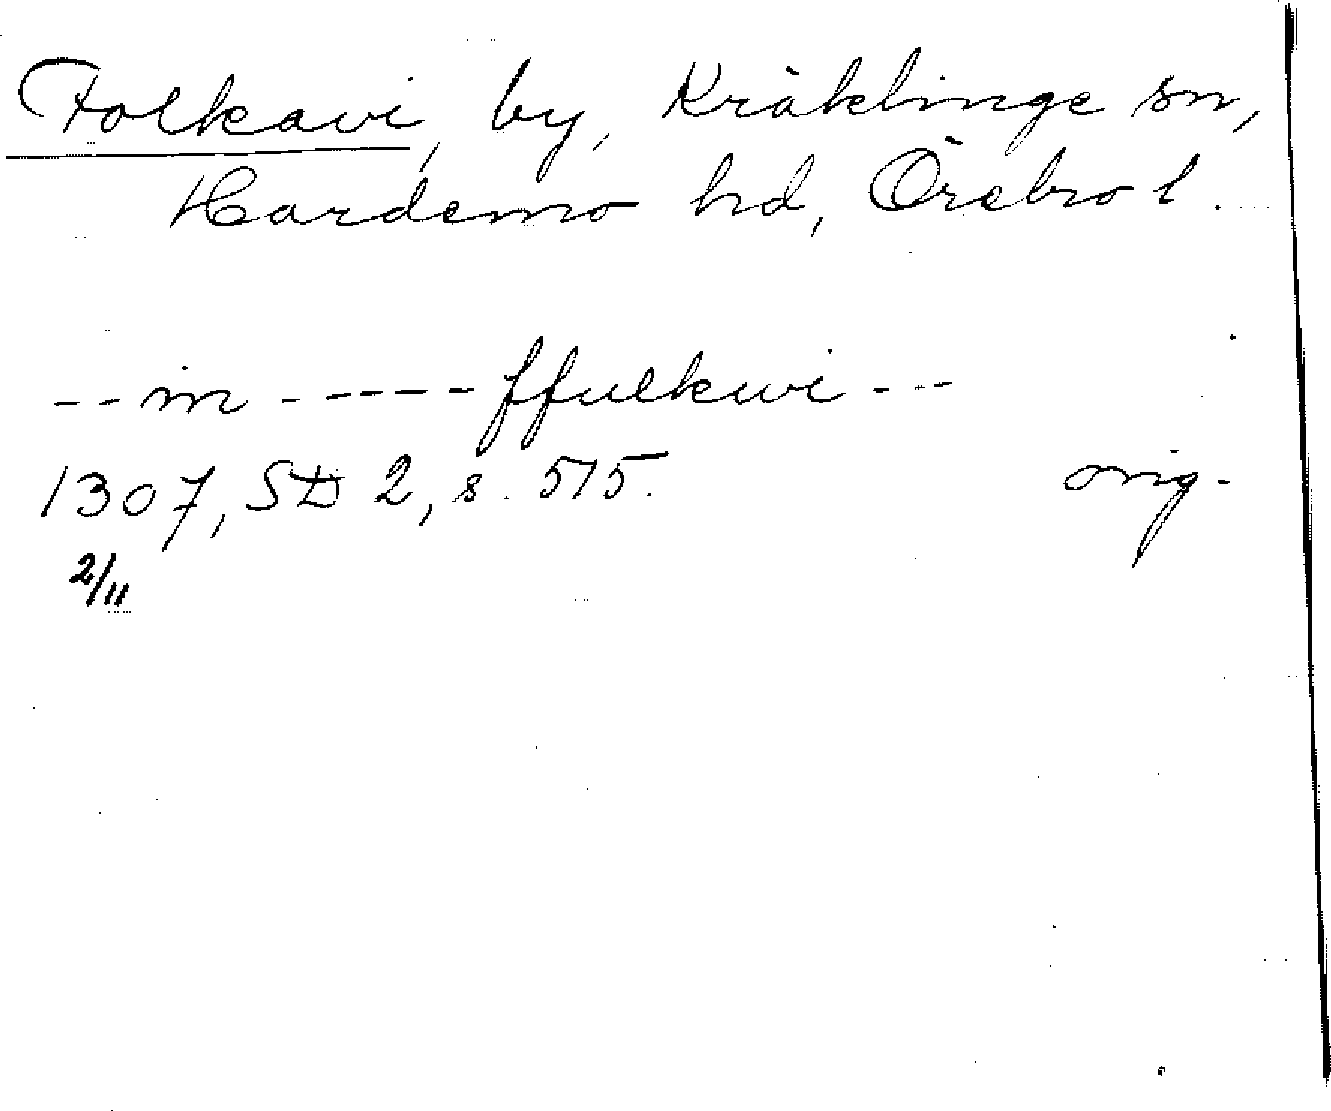 Folkavi, by, Kräklinge sn,
Hardemo hd, Örebro l.
-- in ----- ffulkwi ---
1307, SD 2, s. 515. orig.
2/11